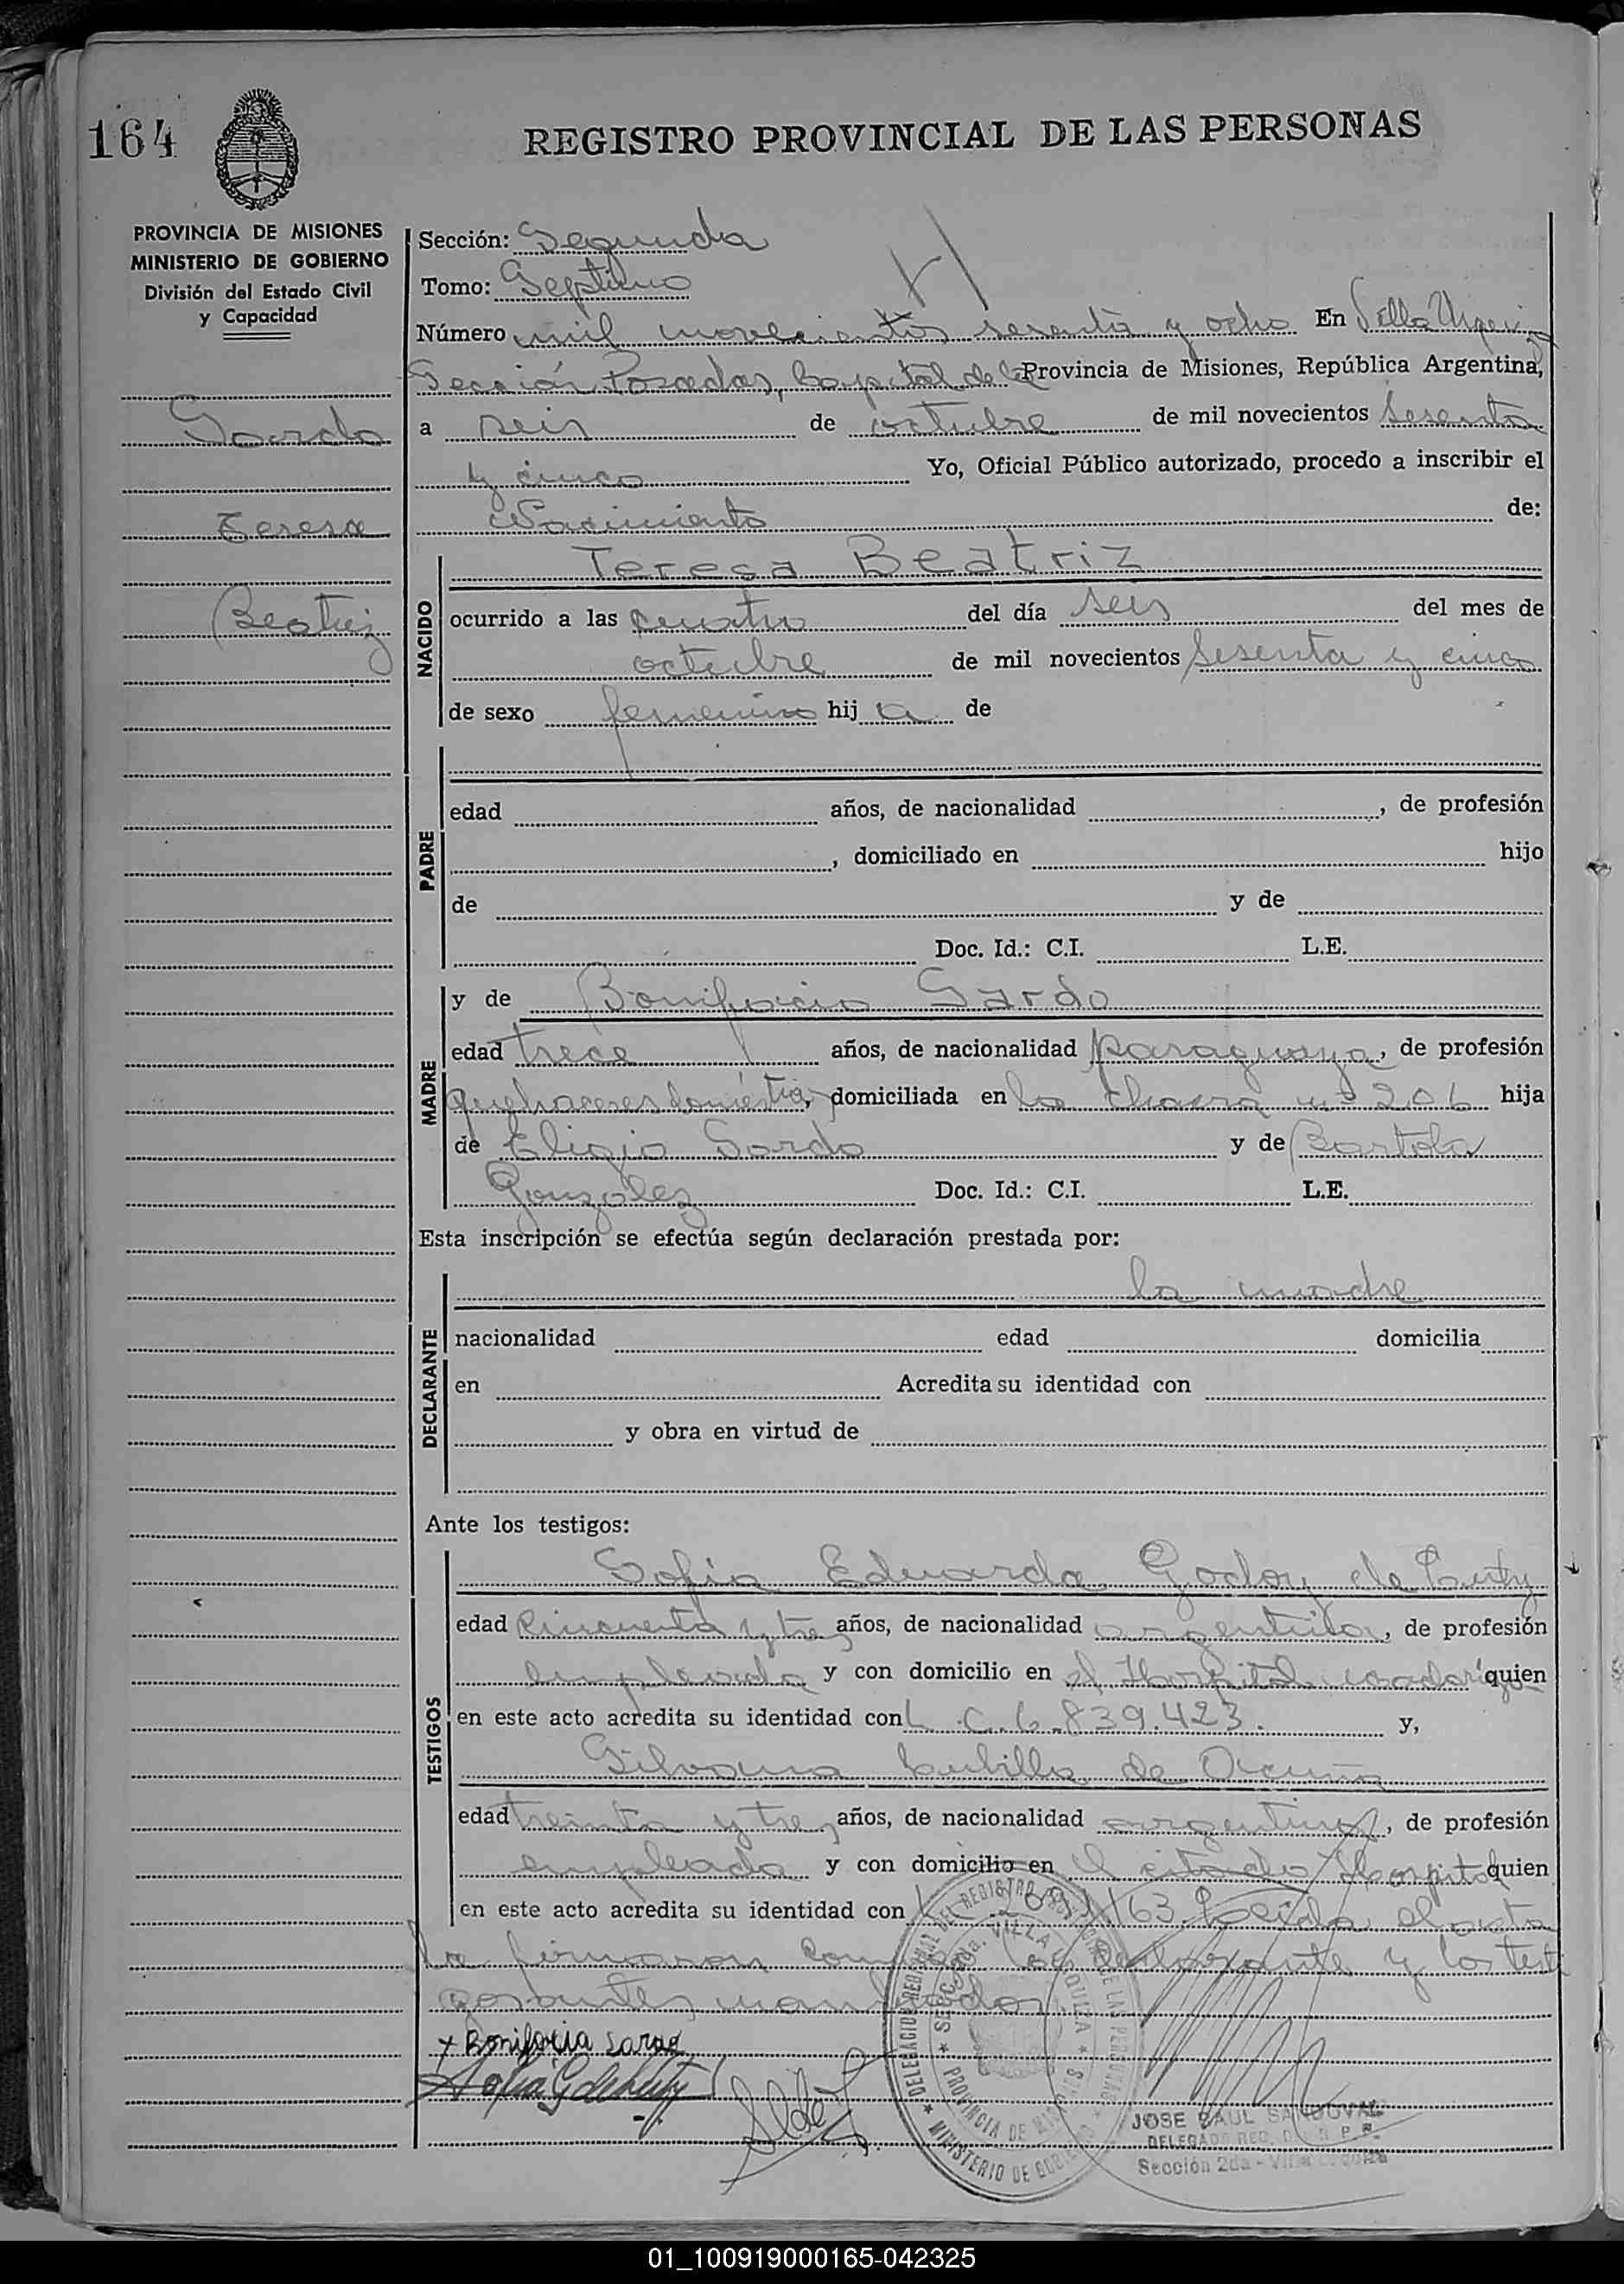 164
REGISTRO PROVINCIAL DE LAS PERSONAS
PROVINCIA DE MISIONES
MINISTERIO DE GOBIERNO
División del Estado Civil
y Capacidad
Sardo
Teresa
Beatriz
Sección: Segunda
Tomo: Septimo
Número mil novecientos sesenta y ocho En Villa Urquiza
Sección Posadas, Capital de la Provincia de Misiones, República Argentina,
a seis de octubre de mil novecientos sesenta
y cinco Yo, Oficial Público autorizado, procedo a inscribir el
Nacimiento de:
NACIDO
Teresa Beatriz
ocurrido a las cuatro del día seis del mes de
octubre de mil novecientos sesenta y cinco
de sexo femenino hij a de
PADRE
edad años, de nacionalidad , de profesión
, domiciliado en hijo
de y de
Doc. Id.: C.I. L.E.
MADRE
y de Bonifacia Sardo
edad trece años, de nacionalidad paraguaya, de profesión
quehaceres doméstic, domiciliada en la chacra nº 206 hija
de Eligio Sardo y de Bartola
González Doc. Id.: C.I. L.E.
Esta inscripción se efectúa según declaración prestada por:
DECLARANTE
la madre
nacionalidad edad domicilia
en Acredita su identidad con
y obra en virtud de
Ante los testigos:
TESTIGOS
Sofia Eduarda Godoy de
edad Cincuenta y tres años, de nacionalidad argentina, de profesión
empleada y con domicilio en el Hospital quien
en este acto acredita su identidad con L.C. 6.839.423. y,
Silvana de Ocuña
edad treinta y tres años, de nacionalidad argentina, de profesión
empleada y con domicilio en el citado Hospital quien
en este acto acredita su identidad con 163. Leída el acta
la firmaron conmigo la declarante y los testi
mencionados
x Bonifacia Sardo
DELEGACION REGIONAL DEL REGISTRO PROVINCIAL DE LAS PERSONAS
SECC. 2da. VILLA URQUIZA
PROVINCIA DE MISIONES
MINISTERIO DE GOBIERNO
JOSE RAUL SANDOVAL
DELEGADO REG. D. R. P. P.
Sección 2da - Villa Urquiza
01_100919000165-042325